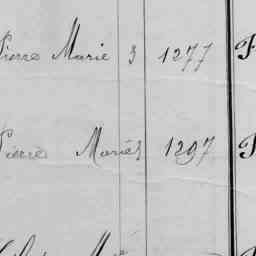 Pierre Marie 3 1277
Pierre Marie 3 1297